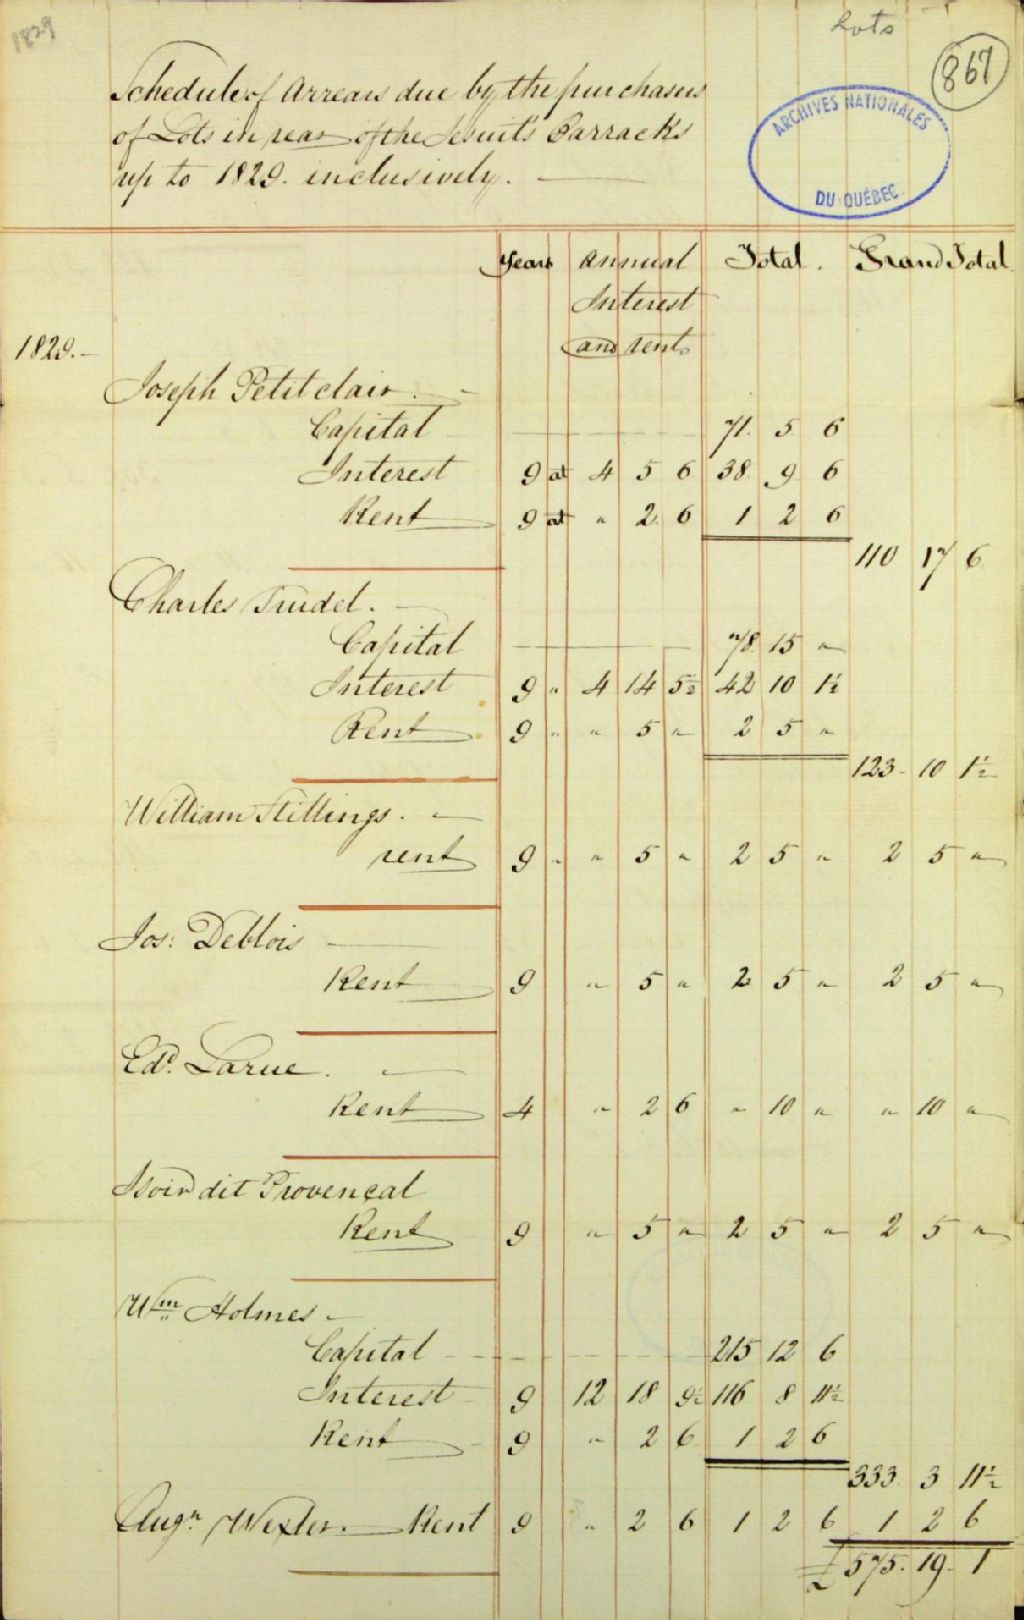 1829
Lots
867
ARCHIVES NATIONALES
DU QUÉBEC
Schedule of Arrears due by the purchasers
of Lots in rear of the Jesuit's Barracks
up to 1829. inclusively. —
Years Annual Total. Grand Total.
Interest
and rents
1829. —
Joseph Petitclair. —
Capital 71. 5 6
Interest 9 at 4 5 6 38 9 6
Rent 9 at " 2 6 1 2 6
110 17 6
Charles Trudel. —
Capital 78. 15 "
Interest 9 " 4 14 5½ 42 10 1½
Rent 9 " " 5 " 2 5 "
123 - 10 1½
William Stillings. —
rent 9 " " 5 " 2 5 " 2 5 "
Jos: Deblois —
Rent 9 " 5 " 2 5 " 2 5 "
Edd. Larue. —
Rent 4 " 2 6 " 10 " " 10 "
Isoir dit Provençal
Rent 9 " 5 " 2 5 " 2 5 "
Wm Holmes —
Capital 215 12 6
Interest 9 12 18 9½ 116 8 11½
Rent 9 " 2 6 1 2 6
333. 3 11½
Augn Wexler. — Rent 9 " 2 6 1 2 6 1 2 6
£ 575. 19. 1